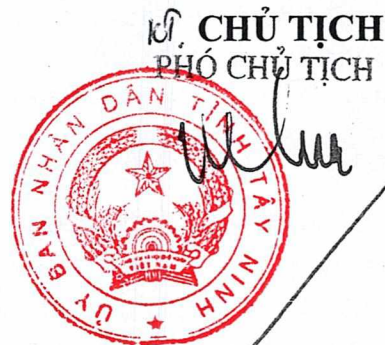 KT. CHỦ TỊCH
PHÓ CHỦ TỊCH
ỦY BAN NHÂN DÂN TỈNH TÂY NINH
VIỆT NAM